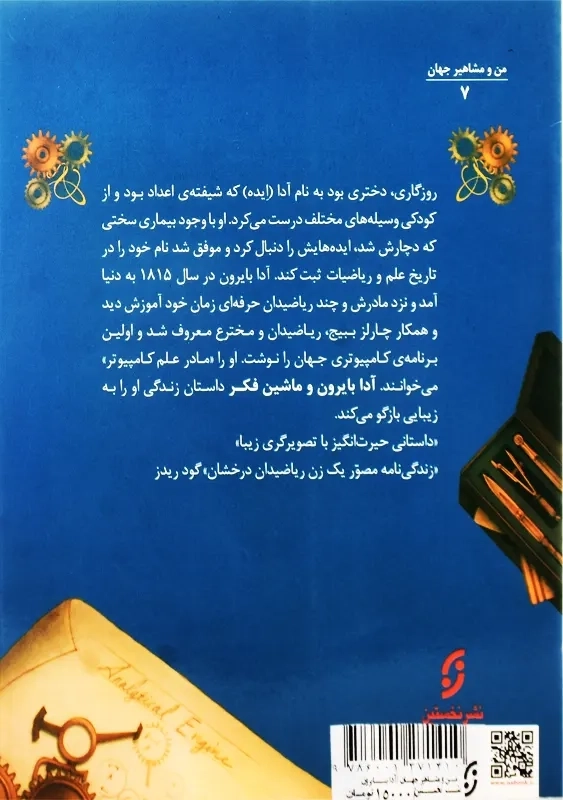 من و مشاهیر جهان
۷
روزگاری، دختری بود به نام آدا (ایده) که شیفته‌ی اعداد بود و از
کودکی وسیله‌های مختلف درست می‌کرد. او با وجود بیماری سختی
که دچارش شد، ایده‌هایش را دنبال کرد و موفق شد نام خود را در
تاریخ علم و ریاضیات ثبت کند. آدا بایرون در سال ۱۸۱۵ به دنیا
آمد و نزد مادرش و چند ریاضیدان حرفه‌ای زمان خود آموزش دید
و همکار چارلز ببیج، ریاضیدان و مخترع معروف شد و اولین
برنامه‌ی کامپیوتری جهان را نوشت. او را «مادر علم کامپیوتر»
می‌خوانند. آدا بایرون و ماشین فکر داستان زندگی او را به
زیبایی بازگو می‌کند.
«داستانی حیرت‌انگیز با تصویرگری زیبا»
«زندگی‌نامه مصوّر یک زن ریاضیدان درخشان» گود ریدز
Analytical Engine
نشر نخستین
من و مشاهیر جهان آدا بایرون
۱۵۰۰۰ تومان